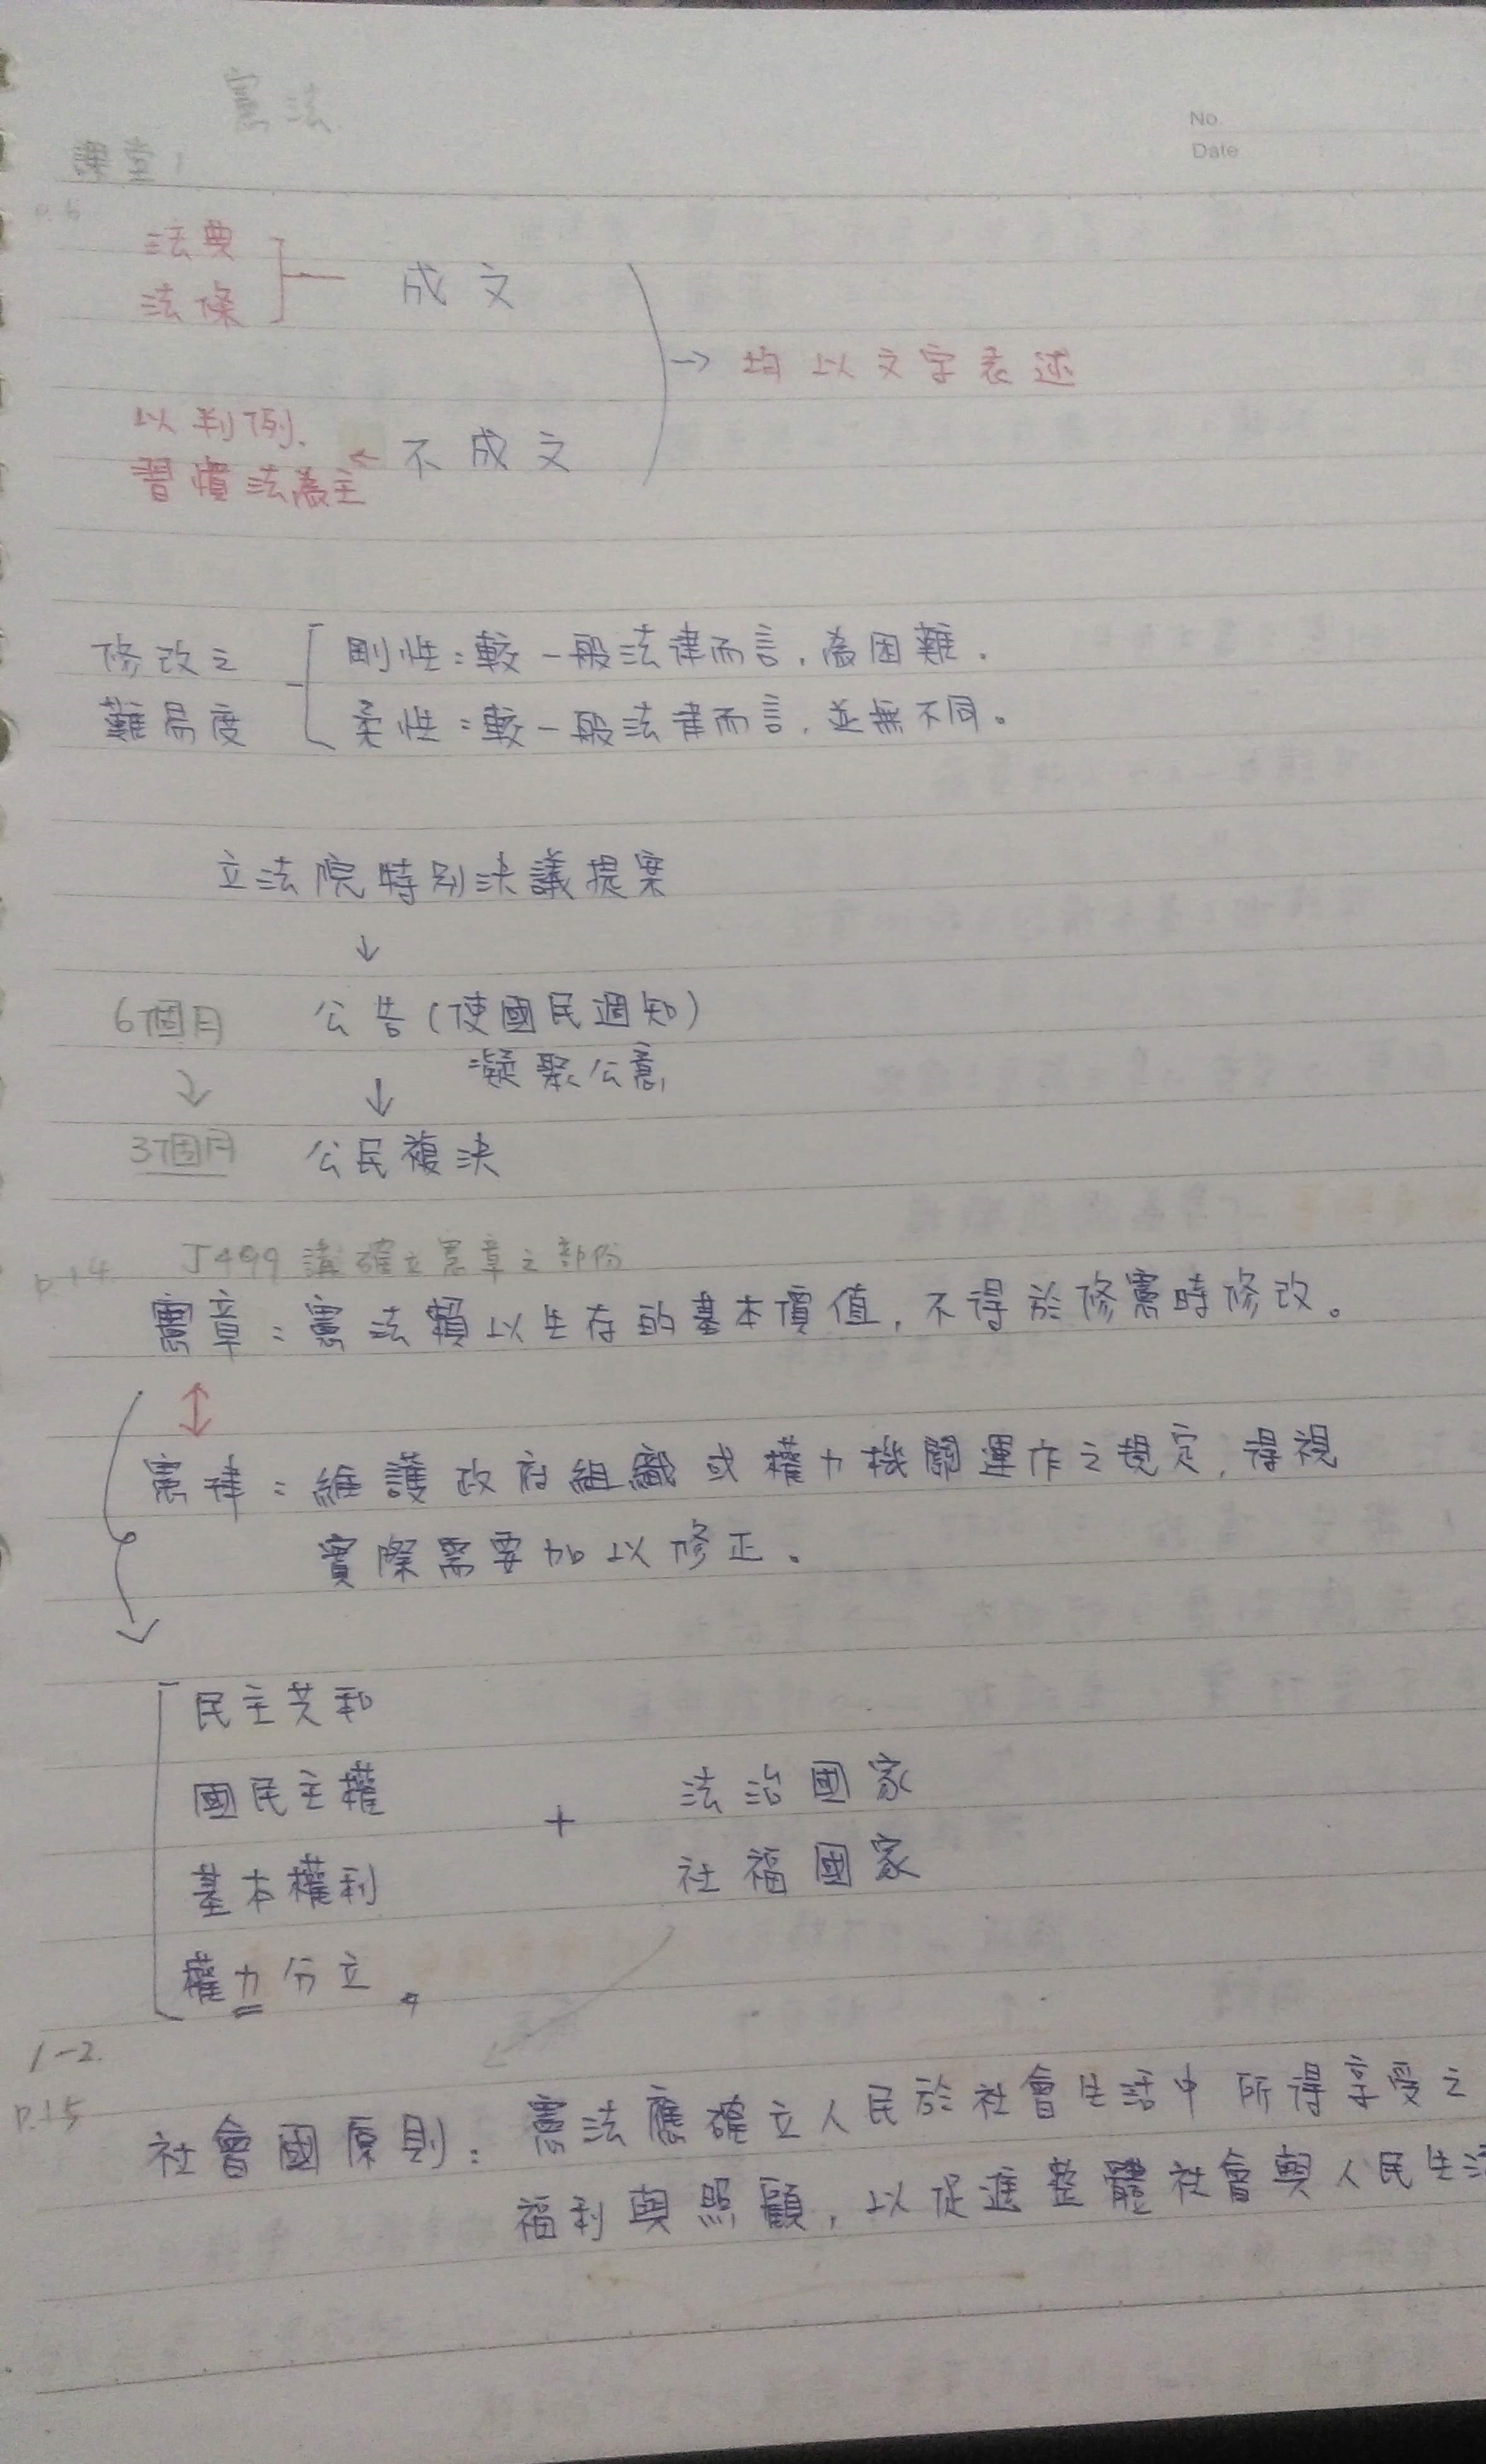 憲法
No.
Date
課堂1
P.6
法典
法條
成文
→ 均以文字表述
以判例、
習慣法為主
← 不成文
修改之
難易度
剛性：較一般法律而言，為困難。
柔性：較一般法律而言，並無不同。
立法院特別決議提案
↓
6個月 公告(使國民週知)
凝聚公意
↓ ↓
3個月 公民複決
P.14 J499 講確立憲章之部份
憲章：憲法賴以生存的基本價值，不得於修憲時修改。
↕
憲律：維護政府組織或權力機關運作之規定，得視
實際需要加以修正。
民主共和
國民主權
基本權利
權力分立
+
法治國家
社福國家
1-2.
P.15
社會國原則：憲法應確立人民於社會生活中所得享受之
福利與照顧，以促進整體社會與人民生活